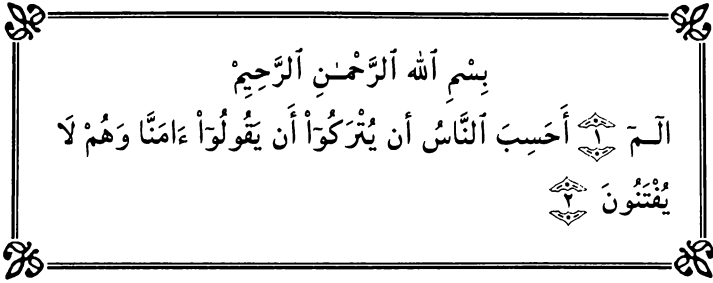 بِسْمِ ٱللهِ ٱلرَّحْمَـٰنِ ٱلرَّحِيمْ
الٓـمٓ ١ أَحَسِبَ ٱلنَّاسُ أن يُتْرَكُوٓاْ أَن يَقُولُوٓاْ ءَامَنَّا وَهُمْ لَا
يُفْتَنُونَ ٢